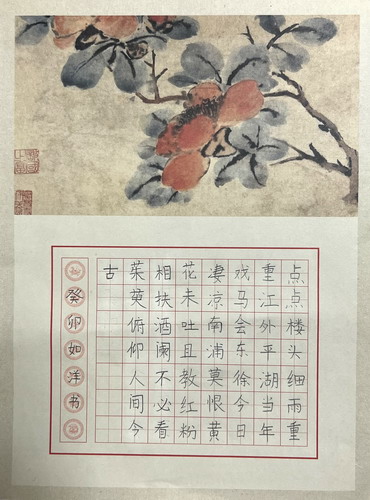 点点楼头细雨重
重江外平湖当年
戏马会东徐今日
凄凉南浦莫恨黄
花未吐且教红粉
相扶酒阑不必看
茱萸俯仰人间今
古
癸卯如洋书